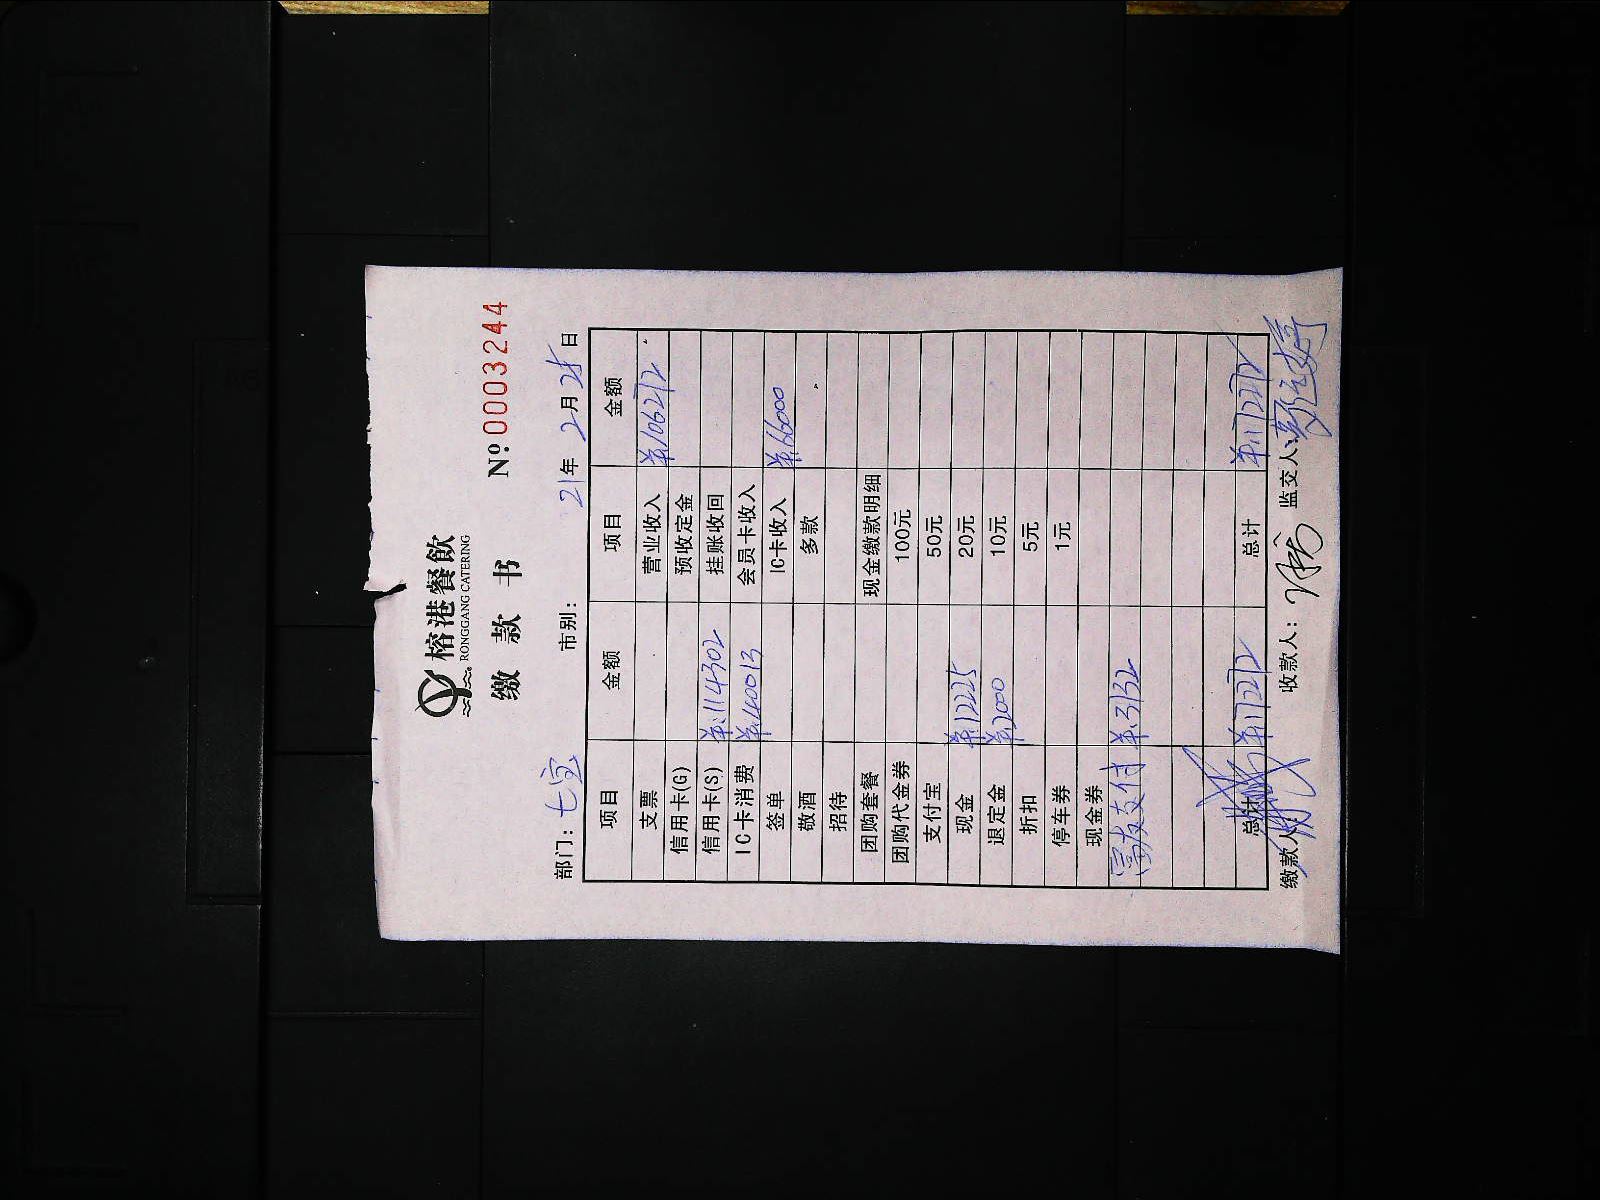 榕港餐飲
RONGGANG CATERING
缴 款 书 Nº 0003244
部门: 七宝 市别: 21年 2月 日
项目 金额 项目 金额
支票 营业收入 ¥106212
信用卡(G) 预收定金
信用卡(S) ¥114302 挂账收回
IC卡消费 ¥40013 会员卡收入
签单 IC卡收入 ¥66000
敬酒 多款
招待
团购套餐 现金缴款明细
团购代金券 100元
支付宝 50元
现金 ¥12225 20元
退定金 ¥2000 10元
折扣 5元
停车券 1元
现金券
富友支付 ¥3132
总计 ¥172212 总计 ¥172212
缴款人: 收款人: 监交人: